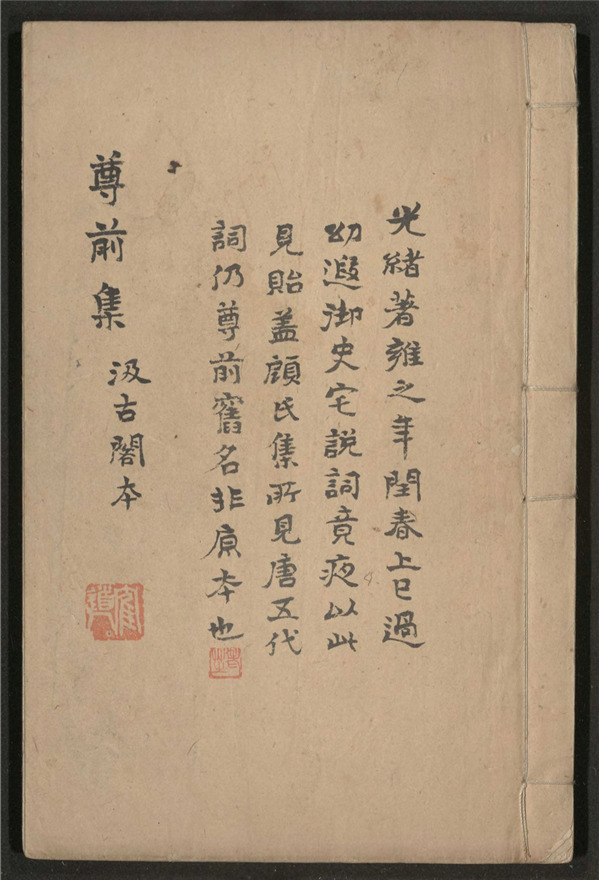 光緒著雍之年閏春上巳過
幼遐御史宅說詞竟夜以此
見貽蓋顧氏集所見唐五代
詞仍尊前舊名非原本也
尊前集
汲古閣本